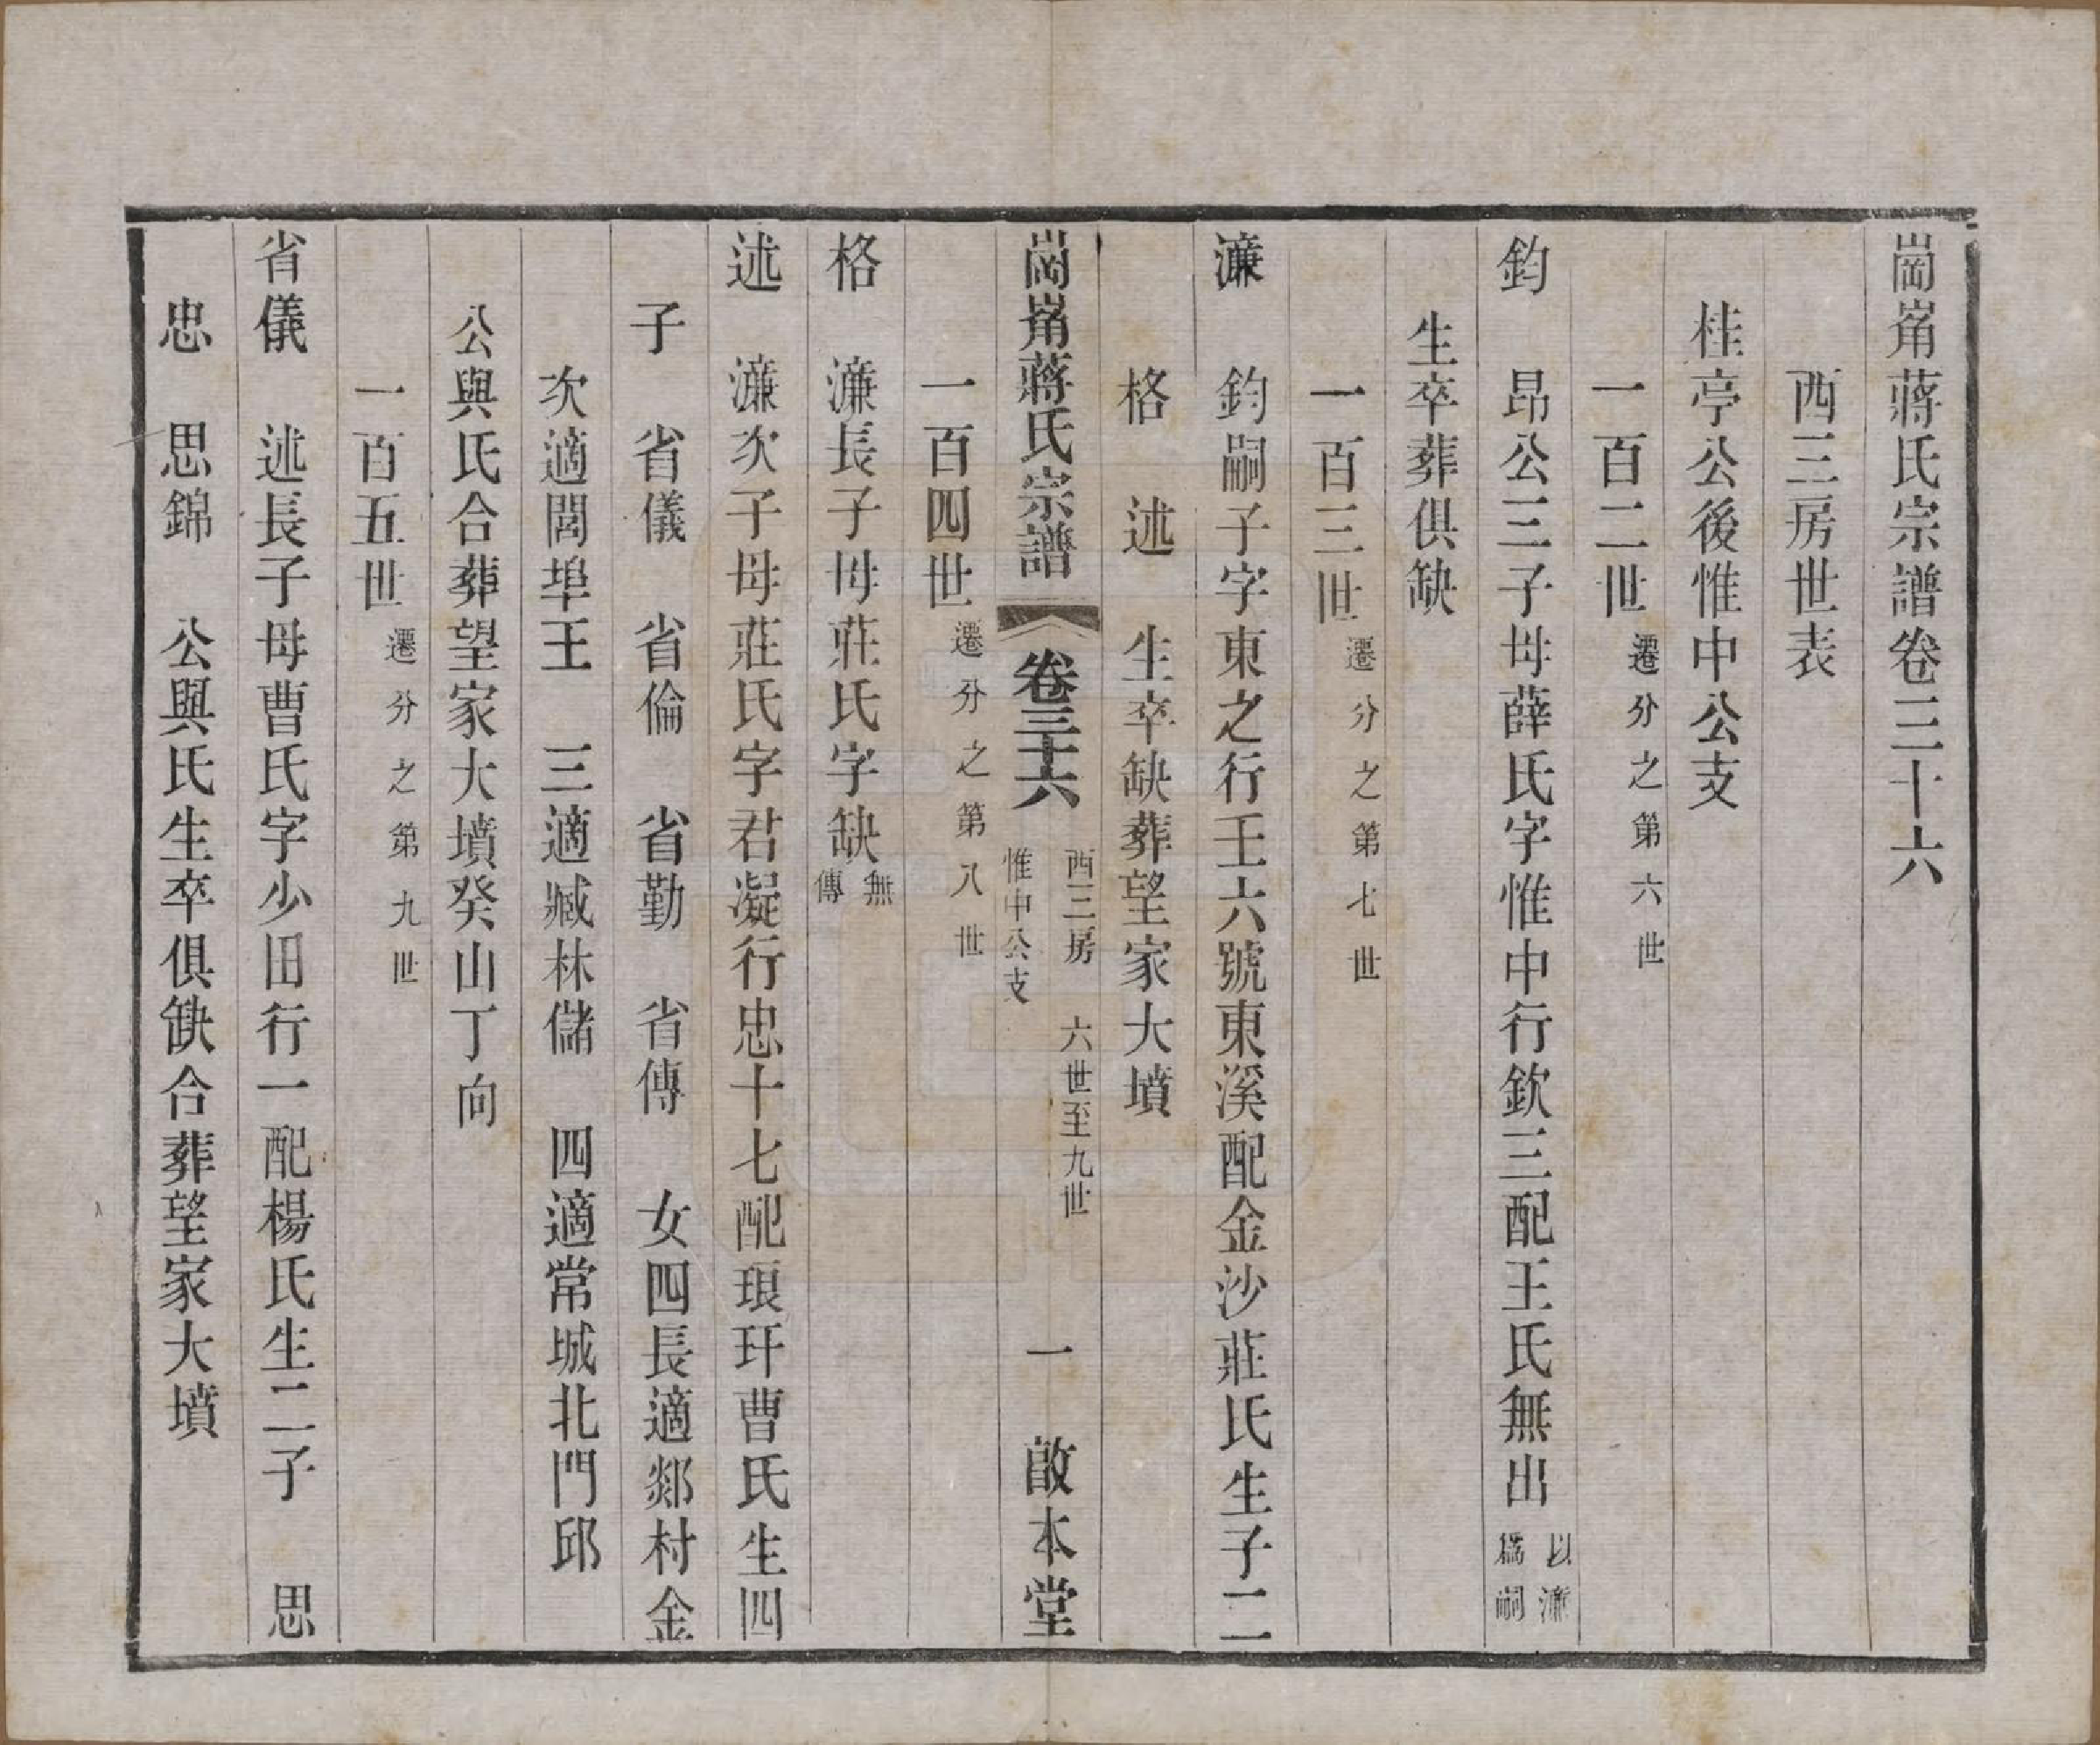 崗㟵蔣氏宗譜卷三十六
西三房世表
桂亭公後惟中公支
一百二世遷分之第六世
鈞　昂公三子母薛氏字惟中行欽三配王氏無出以濂爲嗣
生卒葬俱缺
一百三世遷分之第七世
濂　鈞嗣子字東之行壬六號東溪配金沙莊氏生子二
格　述　生卒缺葬望家大墳
崗㟵蔣氏宗譜　卷三十六　西三房惟中公支　六世至九世　一　啟本堂
一百四世遷分之第八世
格　濂長子母莊氏字缺無傳
述　濂次子母莊氏字君凝行忠十七配琅玕曹氏生四
子　省儀　省倫　省勤　省傳　女四長適郯村金
次適閭埠王　三適臧林儲　四適常城北門邱
公與氏合葬望家大墳癸山丁向
一百五世遷分之第九世
省儀　述長子母曹氏字少田行一配楊氏生二子　思
忠　思錦　公與氏生卒俱缺合葬望家大墳